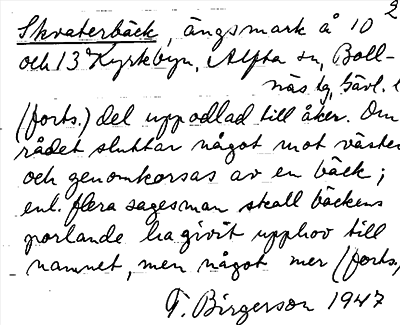 2
Skvaterbäck, ängsmark å 10
och 13 Kyrkbyn, Alfta sn, Boll-
näs tg, Gävl. l
(forts.) del uppodlad till åker. Om
rådet sluttar något mot väster
och genomkorsas av en bäck;
enl. flera sagesmän skall bäckens
porlande ha givit upphov till
namnet, men något mer (forts.)
F. Birgerson 1947